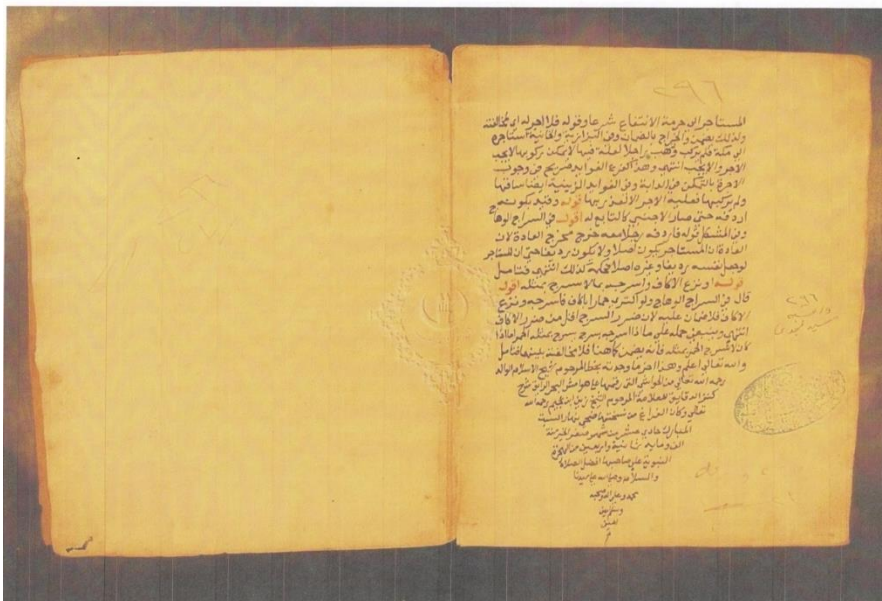 ٢٩٦
المستاجر الى حرمة الانتفاع شرعا وقوله فلا اجر له اي لمخالفته
ولذلك يضمن والخراج بالضمان وفي البزازية والخانية استاجره
الى مكة فلم يركب وذهب راجلا لعلة فيها لا يمكن ركوبها لا يجب
الاجر والا يجب انتهى وهذا الفرع الفوايد صريح في وجوب
الاجرة بالتمكن من الدابة وفي الفوايد الزينية ايضا ساقها
ولم يركبها فعليه الاجر الا لعذر بها قوله وقيد بكونه
اردفه حتى صار الاجنبي كالتابع له اقول في السراج الوهاج
وفي المشكل قوله فاردفه رجلا معه خرج مخرج العادة لان
العادة ان المستاجر يكون اصلا ولا يكون رديفا حتى ان المستاجر
لو جعل نفسه رديفا وغيره اصلا فحكمه كذلك انتهى فتامل
قوله او نزع الاكاف واسرجه بما لا يسرج بمثله اقول
قال في السراج الوهاج ولو اكترى حمارا باكاف فاسرجه ونزع
الاكاف فلا ضمان عليه لان ضرر السرج اقل من ضرر الاكاف
انتهى وينبغي حمله على ما اذا اسرجه بسرج يسرج بمثله الحمر اما اذا
كان لا تسرج الحمر بمثله فانه يضمن كما هنا فلا مخالفة بينهما فتامل
والله تعالى اعلم وهذا اخر ما وجدته بخط المرحوم شيخ الاسلام الوالد
رحمه الله تعالى من الحواشي التي رقمها على هوامش البحر الرايق شرح
كنز الدقايق للعلامة المرحوم الشيخ زين ابن نجيم رحمه الله
تعالى وكان الفراغ من نسختها ضحى نهار السبت
المبارك حادي عشرين شهر صفر الخير سنة
الف وماية ثمانية واربعين من الهجرة
النبوية على صاحبها افضل الصلاة
والسلام وصلى الله على سيدنا
محمد وعلى اله وصحبه
وسلم
امين
م